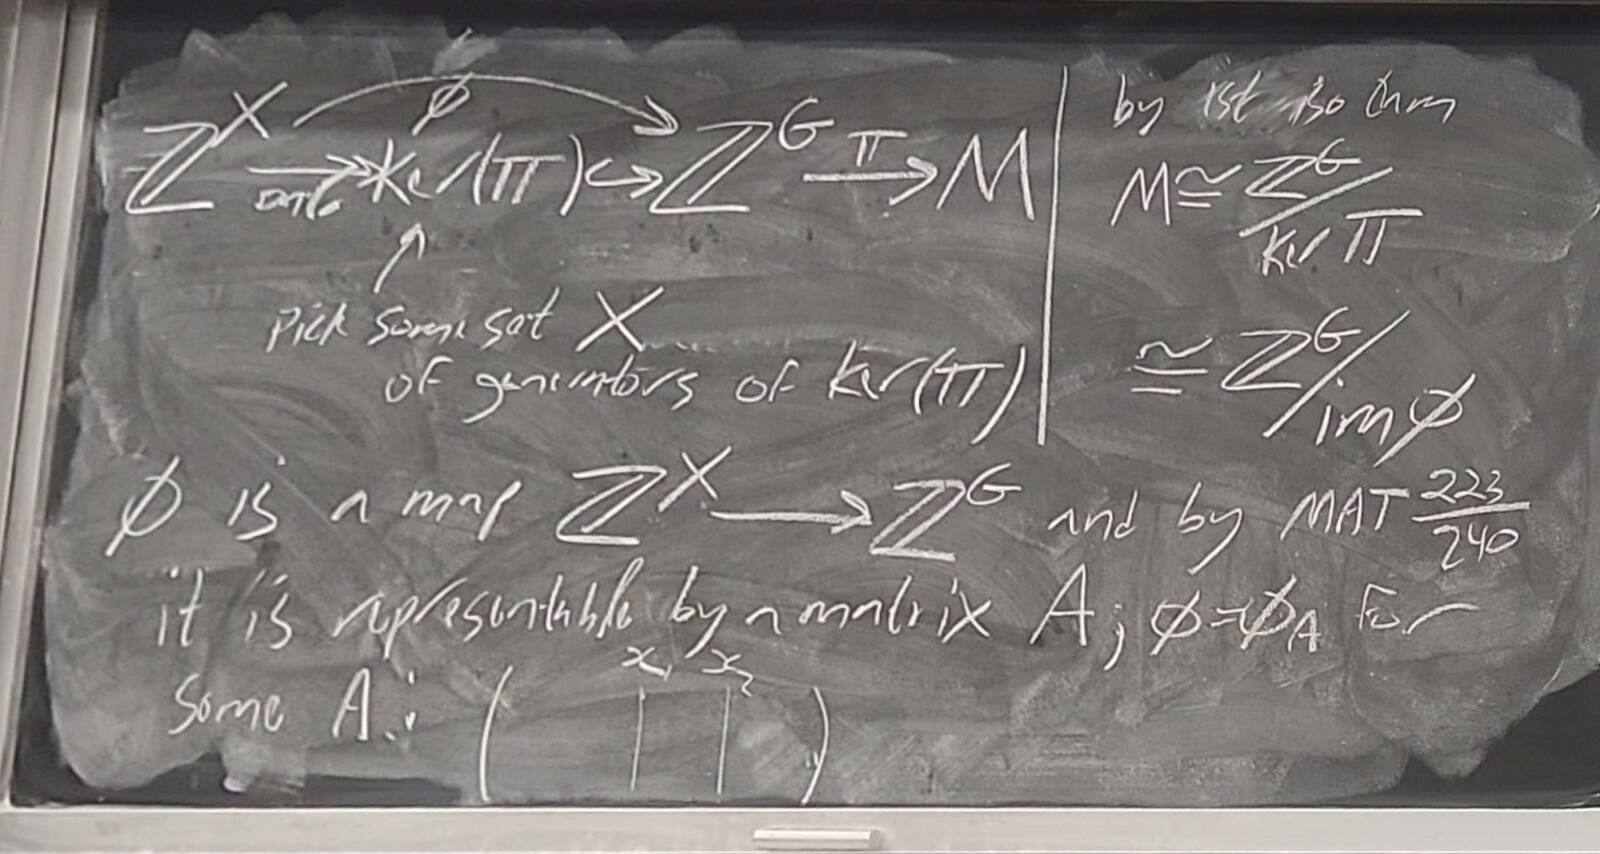 ϕ
ℤ^X ↠ ker(π) ↪ ℤ^G →^π M
pick some set X
of generators of ker(π)
by 1st iso thm
M ≅ ℤ^G / ker π
≅ ℤ^G / im ϕ
ϕ is a map ℤ^X → ℤ^G and by MAT 223/240
it is representable by a matrix A; ϕ=ϕ_A for
some A: ( x₁ x₂ )